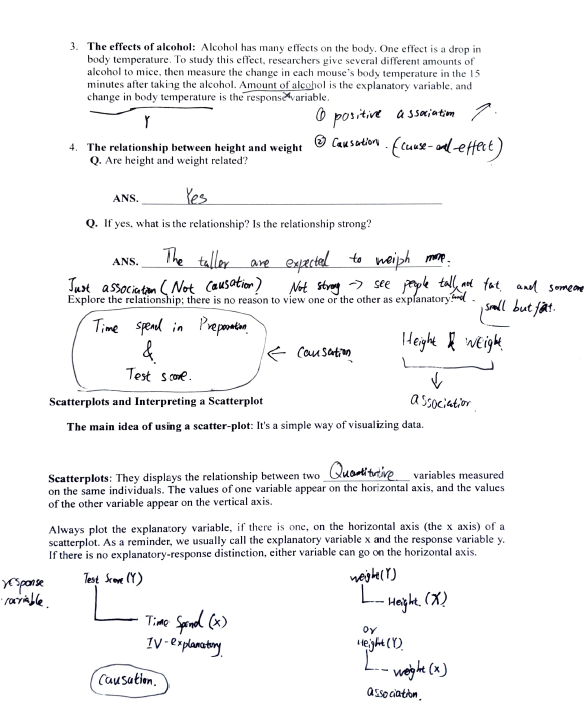 3. The effects of alcohol: Alcohol has many effects on the body. One effect is a drop in
body temperature. To study this effect, researchers give several different amounts of
alcohol to mice, then measure the change in each mouse's body temperature in the 15
minutes after taking the alcohol. Amount of alcohol is the explanatory variable, and
change in body temperature is the response variable.
X
Y
① positive association ↗.
② Causation. (cause-and-effect)
4. The relationship between height and weight
Q. Are height and weight related?
ANS. Yes
Q. If yes, what is the relationship? Is the relationship strong?
ANS. The taller are expected to weigh more.
Just association (Not causation) Not strong → see people tall not fat, and someone
small but fat.
Explore the relationship; there is no reason to view one or the other as explanatory
Time spend in Preparation
&
Test score.
← Causation
Height & Weight
↓
association
Scatterplots and Interpreting a Scatterplot
The main idea of using a scatter-plot: It's a simple way of visualizing data.
Scatterplots: They displays the relationship between two Quantitative variables measured
on the same individuals. The values of one variable appear on the horizontal axis, and the values
of the other variable appear on the vertical axis.
Always plot the explanatory variable, if there is one, on the horizontal axis (the x axis) of a
scatterplot. As a reminder, we usually call the explanatory variable x and the response variable y.
If there is no explanatory-response distinction, either variable can go on the horizontal axis.
response
variable.
Test Score (Y)
Time Spend (x)
IV-explanatory
Causation.
weight (Y)
Height (X)
or
Height (Y)
weight (x)
association.